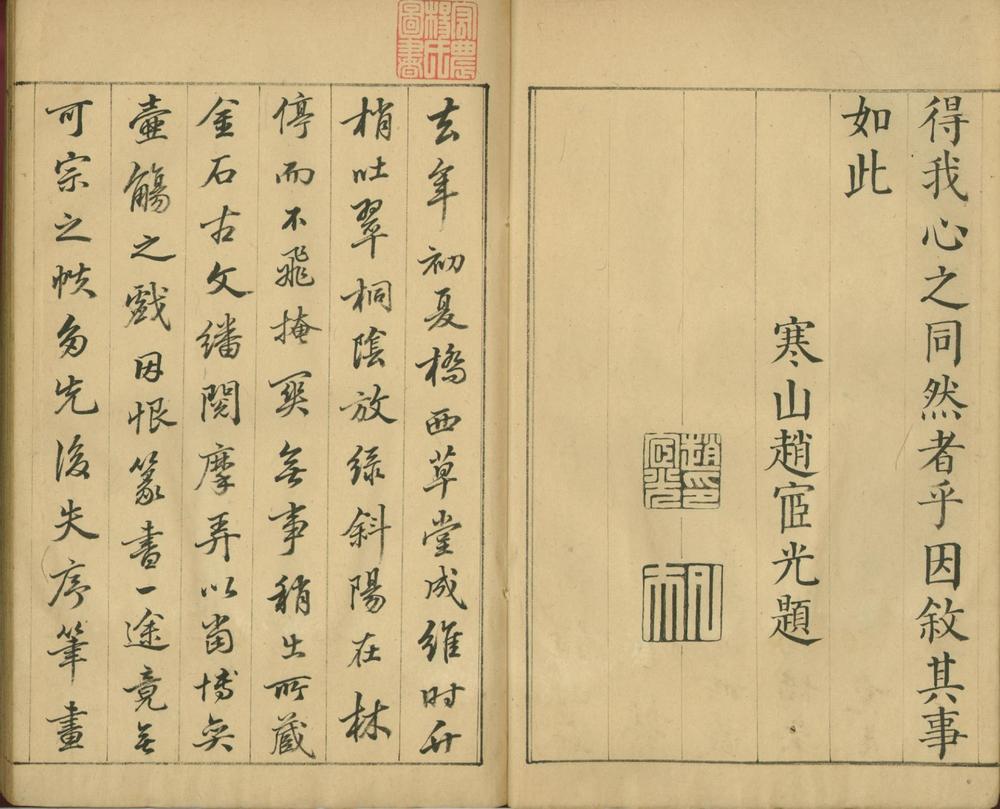 得我心之同然者乎因敘其事
如此
寒山趙宧光題
趙印宧光
凡夫
宏農楊氏圖書
去年初夏橋西草堂成維时
梢吐翠桐陰放綠斜陽在林
停而不飛掩関無事稍出所蔵
金石古文繙閱摩弄以當博奕
壺觴之戲因恨篆書一途竟無
可宗之帙多先後失序筆畫